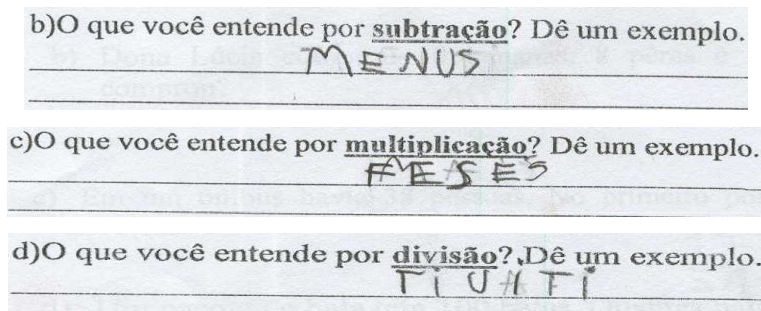 b)O que você entende por subtração? Dê um exemplo.
MENUS
c)O que você entende por multiplicação? Dê um exemplo.
d)O que você entende por divisão? Dê um exemplo.